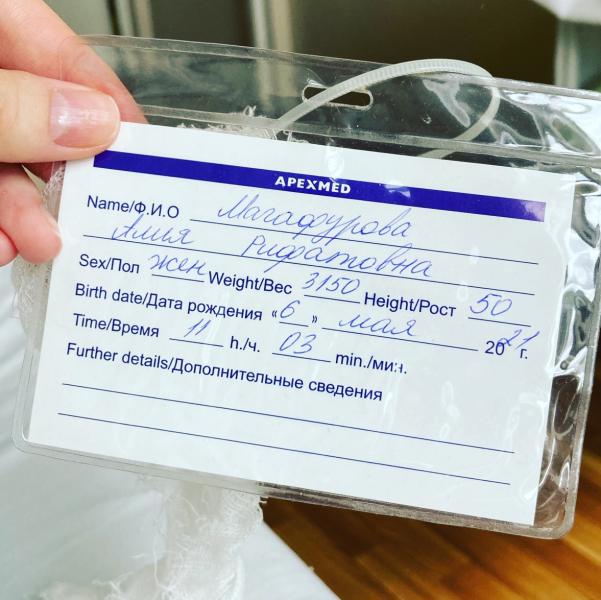 APEXMED
Name/Ф.И.О Магафурова
Алия Рифатовна
Sex/Пол жен Weight/Вес 3150 Height/Рост 50
Birth date/Дата рождения «6» мая 2021 г.
Time/Время 11 h./ч. 03 min./мин.
Further details/Дополнительные сведения